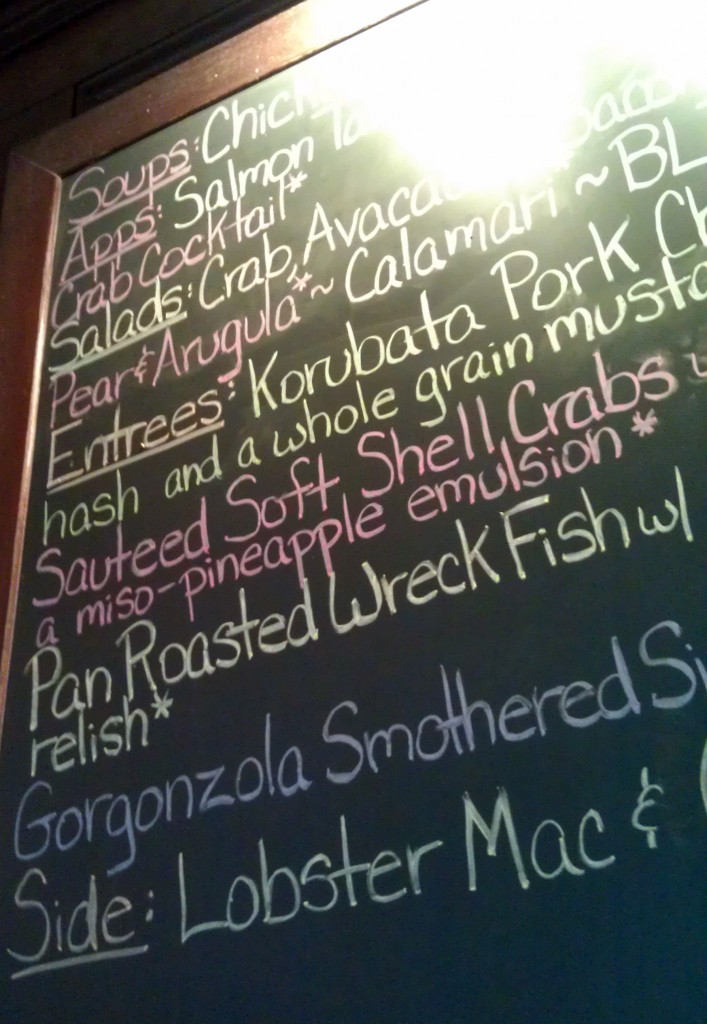 Soups: Chic
Apps: Salmon
Crab Cocktail*
Salads: Crab, Avaca
Pear & Arugula* ~ Calamari ~ BL
Entrees: Korubata Pork Ch
hash and a whole grain musta
Sauteed Soft Shell Crabs w
a miso-pineapple emulsion*
Pan Roasted Wreck Fish w/
relish*
Gorgonzola Smothered Si
Side: Lobster Mac &